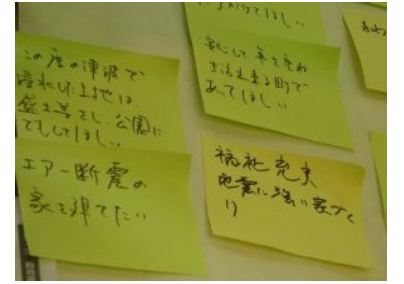 この度の津波で
流れた土地は
盛土等をし、公園に
でもしてほしい
エアー断震の
家を建てたい
てほしい
安心して年を重ね
生活出来る町で
あってほしい
福祉充実
地震に強い家づく
り